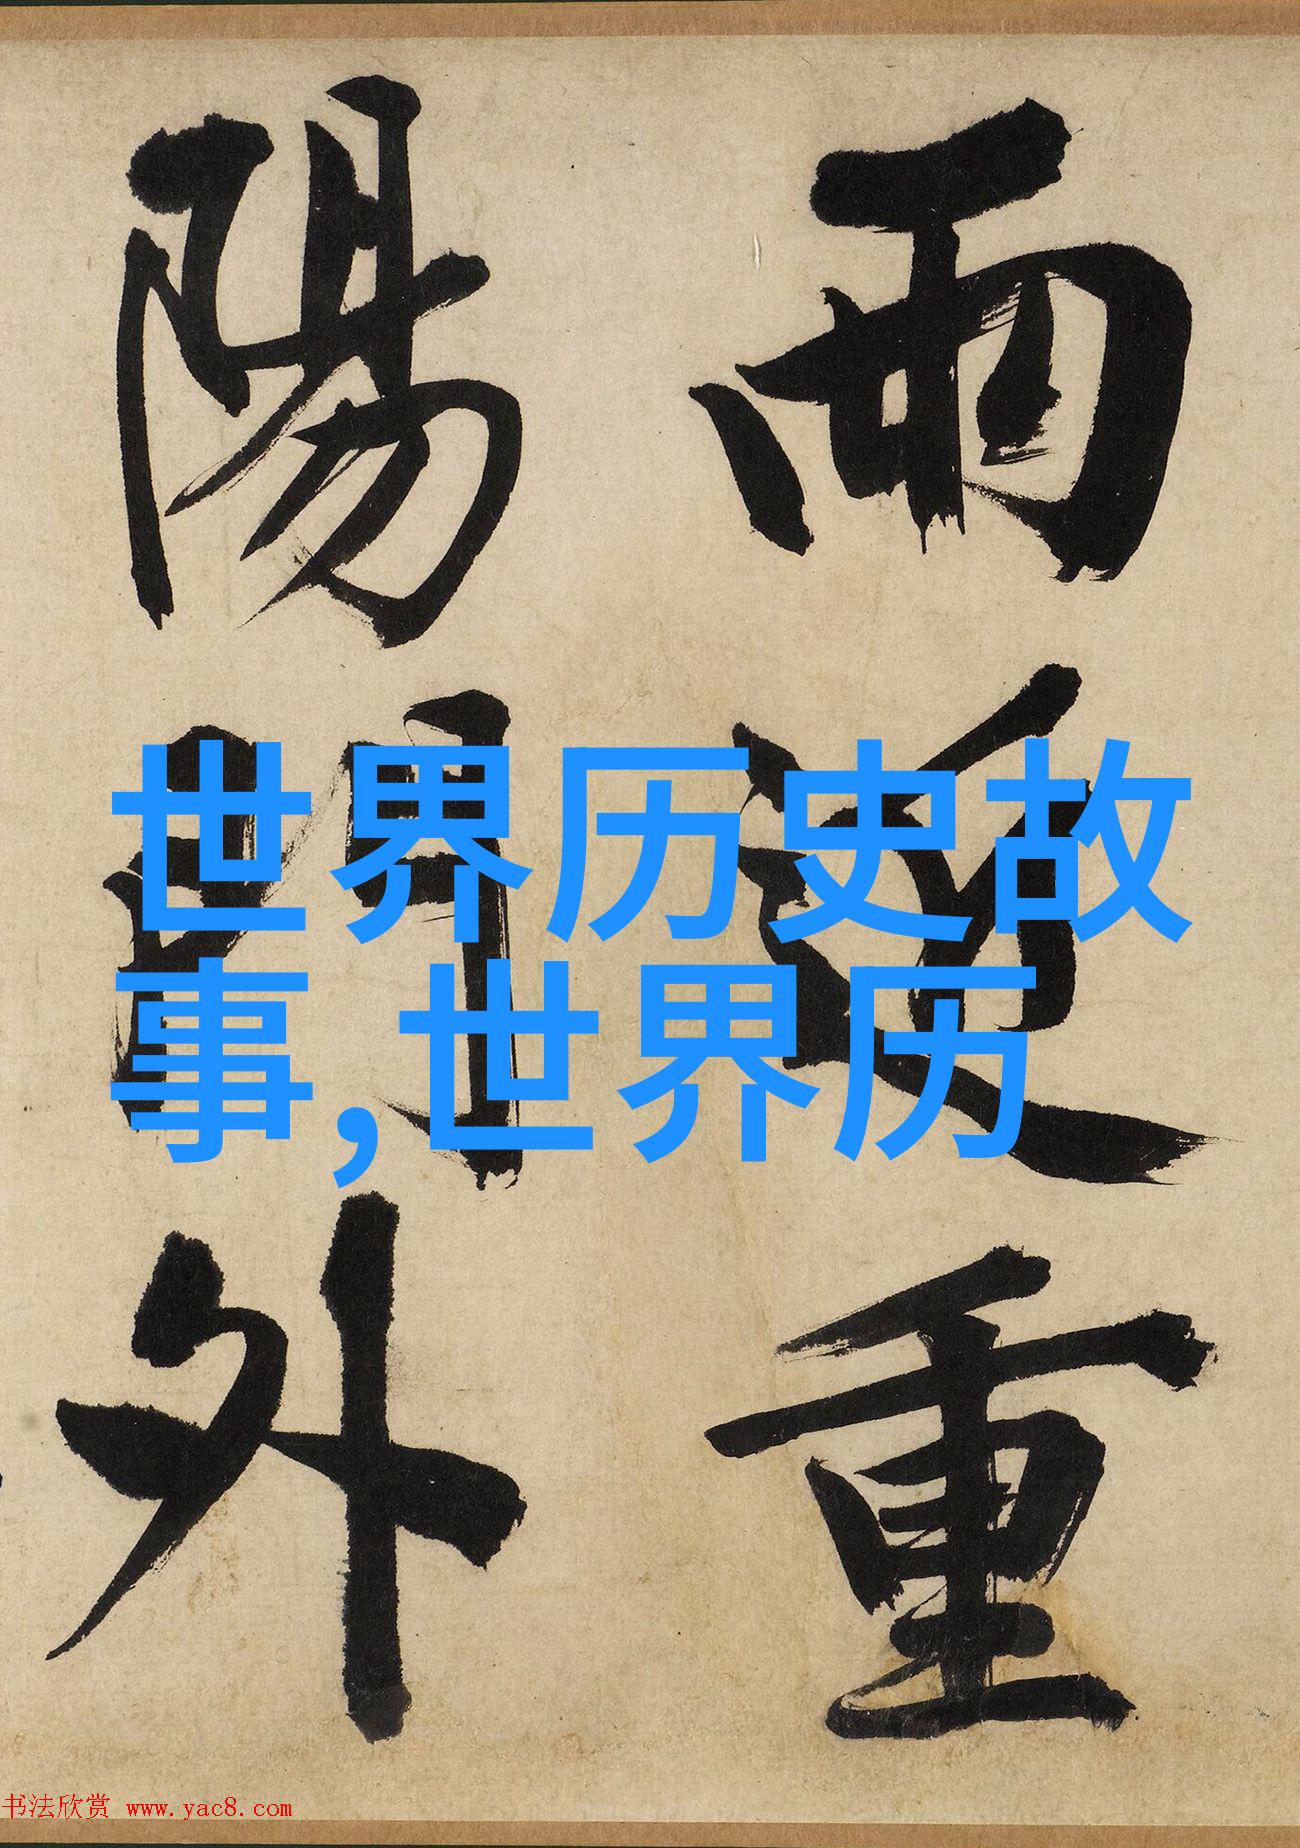 雨近重
陽門外
世界历史故
事,世界历
书法欣赏 www.yac8.com